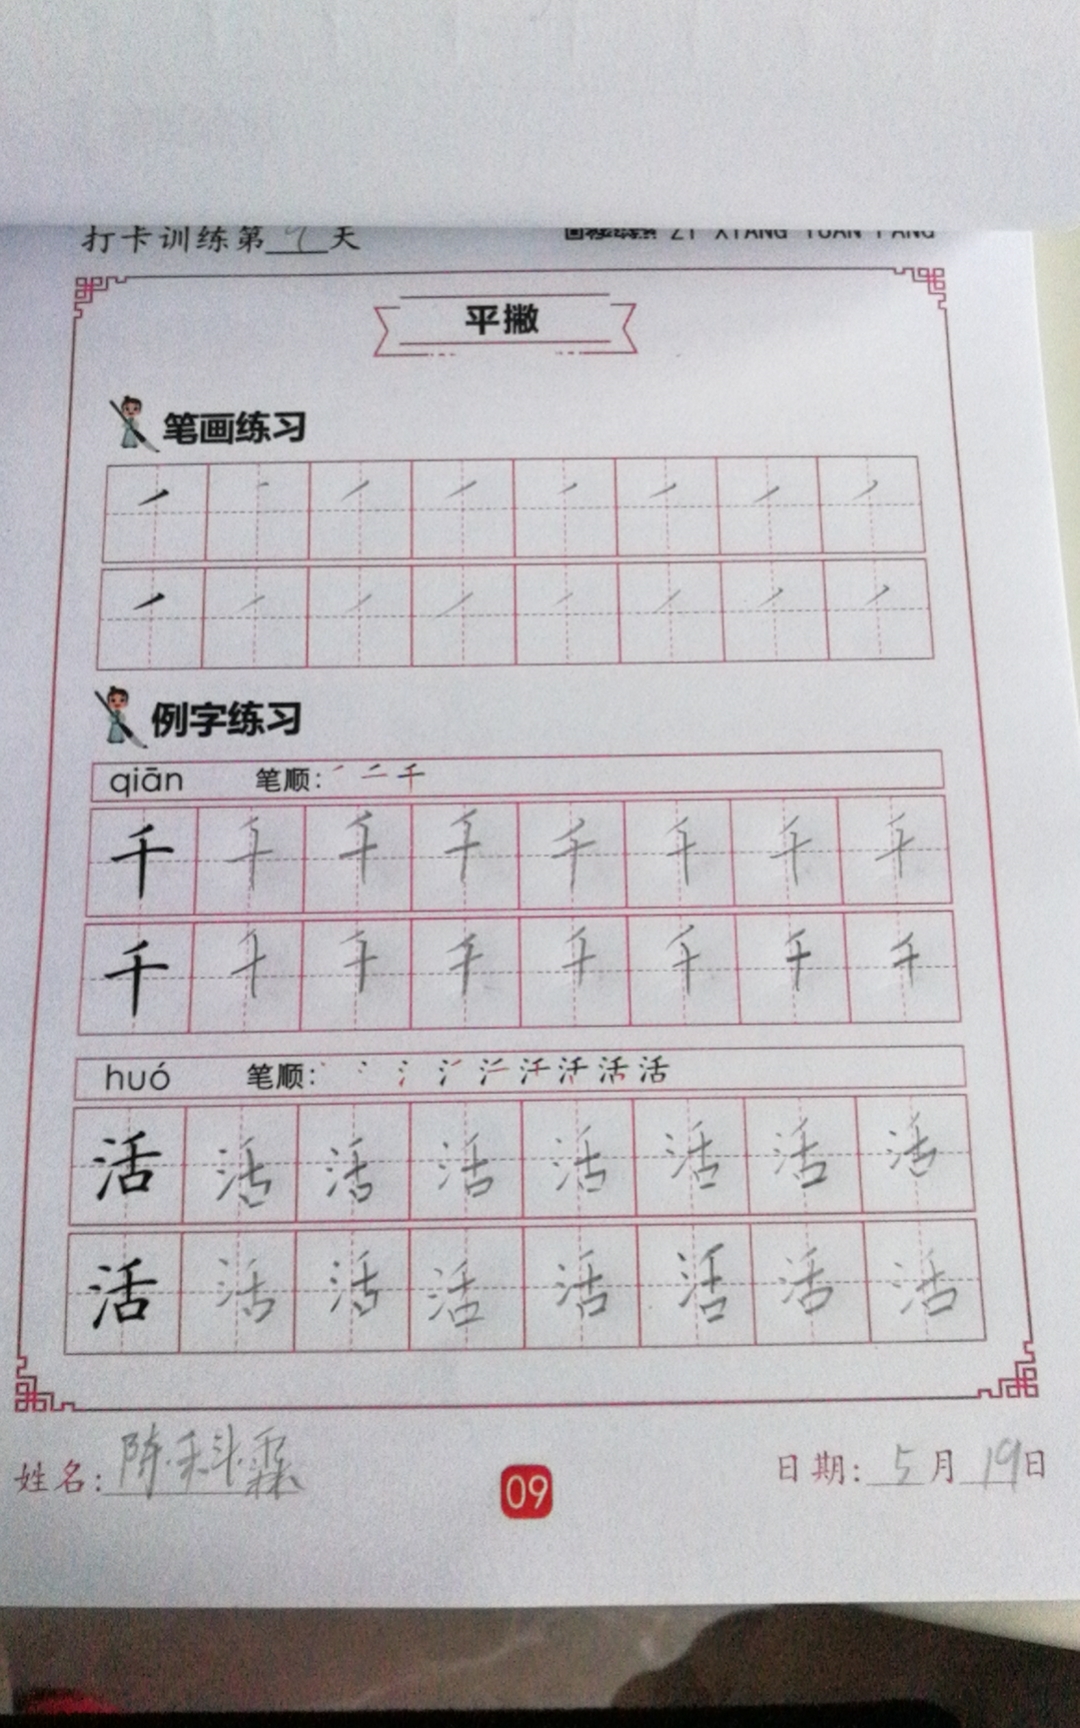 打卡训练第 9 天
ZI XIANG YUAN FANG
平撇
笔画练习
例字练习
qiān 笔顺:
千 千 千 千 千 千 千 千
千 千 千 千 千 千 千 千
huó 笔顺: 活
活 活 活 活 活 活 活 活
活 活 活 活 活 活 活 活
姓名: 陈科霖
09
日期: 5月19日